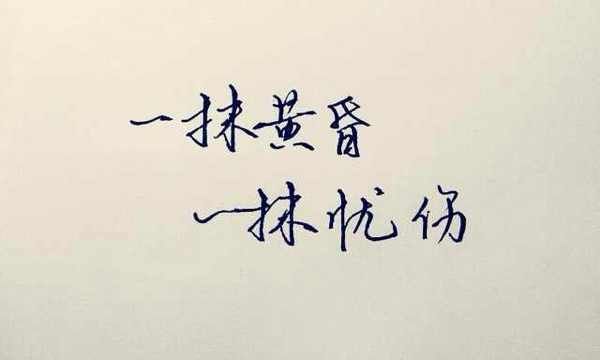 一抹黄昏
一抹忧伤